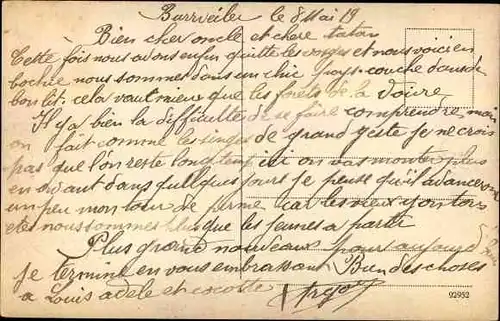 Burrweiler le 8 Mai 19
Bien cher oncle et chere tatan
Cette fois nous avons enfin quitte les vosges et nous voici en
bochie nous sommes dans un chic pays couche dans de
bon lit. cela vaut mieux que les forêts de la Voivre
Il y a bien la difficulté de se faire comprendre mon
on fait comme les singes de grand geste je ne crois
pas que l'on reste longtemps ici on vas monter plus
en avant dans quelques jours je pense qu'il avancerons
un peu mon tour de perme car les vieux
et nous sommes plus que les jeunes a partir
Plus grand nouveaux pour aujourd
Je termine en vous embrassant Bien des choses
a Louis adele et cocotte
92952